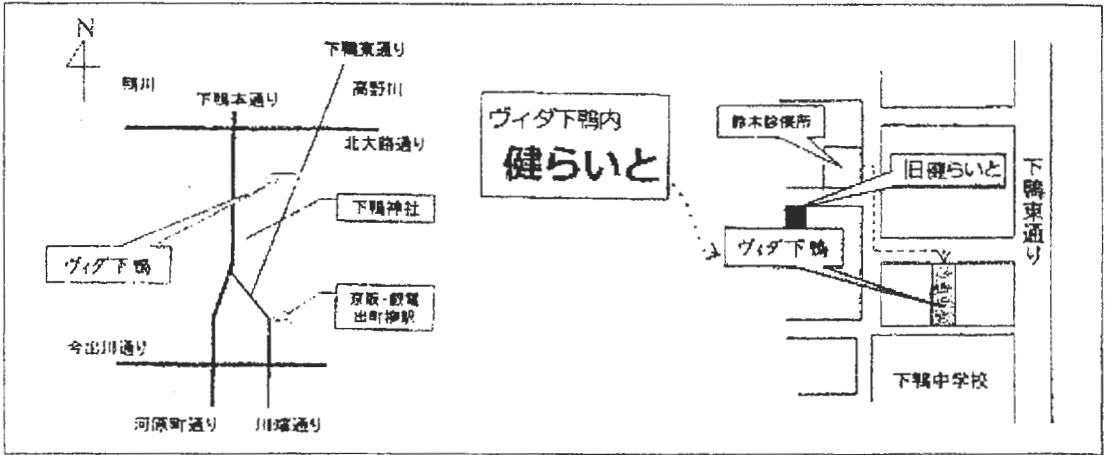 N
下鴨東通り
鴨川
高野川
下鴨本通り
北大路通り
下鴨神社
ヴィダ下鴨
京阪・叡電
出町柳駅
今出川通り
河原町通り
川端通り
ヴィダ下鴨内
健らいと
鈴木診療所
旧健らいと
ヴィダ下鴨
下鴨東通り
下鴨中学校